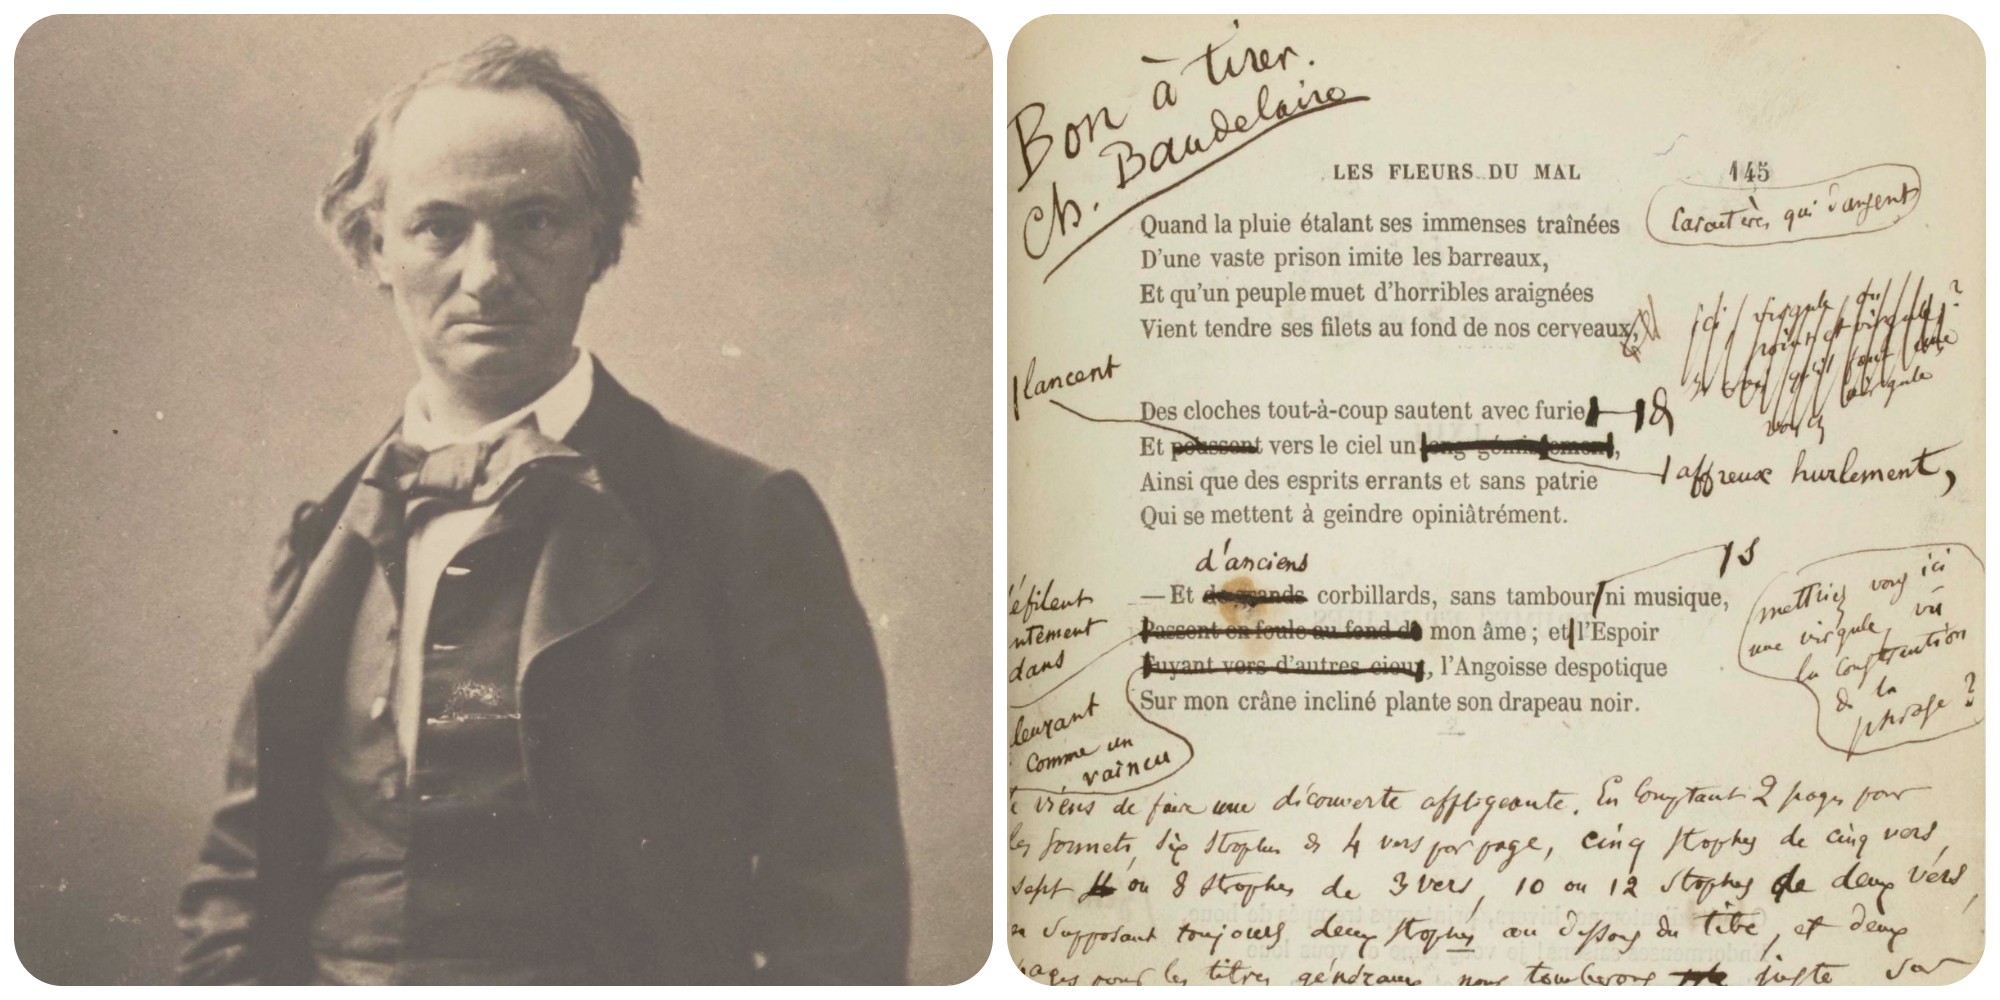 Bon à tirer.
Ch. Baudelaire
LES FLEURS DU MAL 145
Caractères qui dansent
Quand la pluie étalant ses immenses traînées
D'une vaste prison imite les barreaux,
Et qu'un peuple muet d'horribles araignées
Vient tendre ses filets au fond de nos cerveaux,
ici virgule ou
point et virgule?
lancent
Des cloches tout-à-coup sautent avec furie
Et poussent vers le ciel un long gémissement,
affreux hurlement,
Ainsi que des esprits errants et sans patrie
Qui se mettent à geindre opiniâtrément.
d'anciens
s
— Et de grands corbillards, sans tambour ni musique,
éfilent
ntement
dans
Passent en foule au fond de mon âme ; et l'Espoir
Fuyant vers d'autres cieux, l'Angoisse despotique
Sur mon crâne incliné plante son drapeau noir.
mettriez vous ici
une virgule, vu
la construction
de la
phrase ?
leurant
comme un
vaincu
viens de faire une découverte affligeante. En comptant 2 pages pour
les sonnets, six strophes de 4 vers par page, cinq strophes de cinq vers,
sept ou 8 strophes de 3 vers, 10 ou 12 strophes de deux vers,
en supposant toujours deux strophes au dessous du titre, et deux
pages pour les titres généraux, nous tomberons juste sur